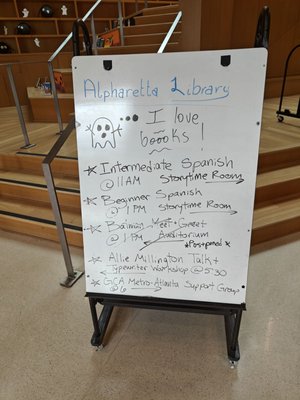 Alpharetta Library
... I love
boooks!
Intermediate Spanish
@ 11AM Storytime Room
Beginner Spanish
@ 1 PM Storytime Room
Meet + Greet
@ 1 PM Auditorium
*Postponed*
Allie Millington Talk +
Typewriter Workshop @ 5:30
GCA Metro-Atlanta Support Group
@ 6